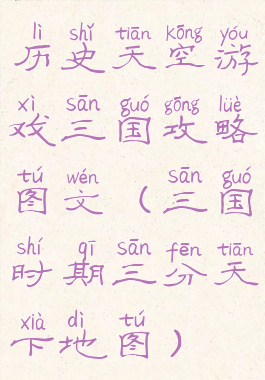 lì shǐ tiān kōng yóu
历史天空游
xì sān guó gōng lüè
戏三国攻略
tú wén sān guó
图文（三国
shí qī sān fēn tiān
时期三分天
xià dì tú
下地图）